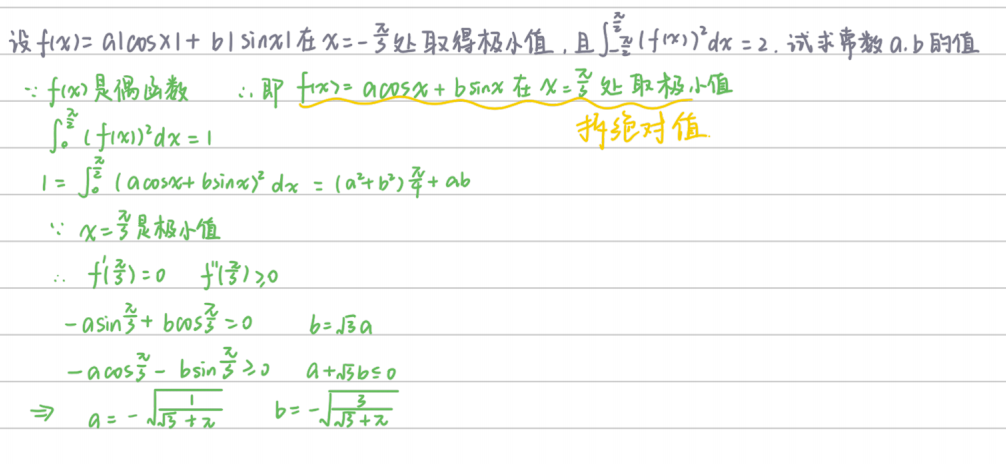 设 f(x)= a|cosx| + b|sinx| 在 x=-π/3 处取得极小值, 且∫_{-π/2}^{π/2}(f(x))²dx = 2. 试求常数 a.b 的值
∵ f(x) 是偶函数 ∴ 即 f(x)= acosx + bsinx 在 x=π/3 处取极小值
∫_0^{π/2} (f(x))²dx = 1 拆绝对值.
1= ∫_0^{π/2} (acosx+bsinx)² dx = (a²+b²)π/4 + ab
∵ x=π/3 是极小值
∴ f'(π/3)=0 f''(π/3)≥0
-asinπ/3 + bcosπ/3 =0 b=√3a
-acosπ/3 - bsinπ/3 ≥0 a+√3b≤0
⇒ a= -√(1/(√3+π)) b= -√(3/(√3+π))